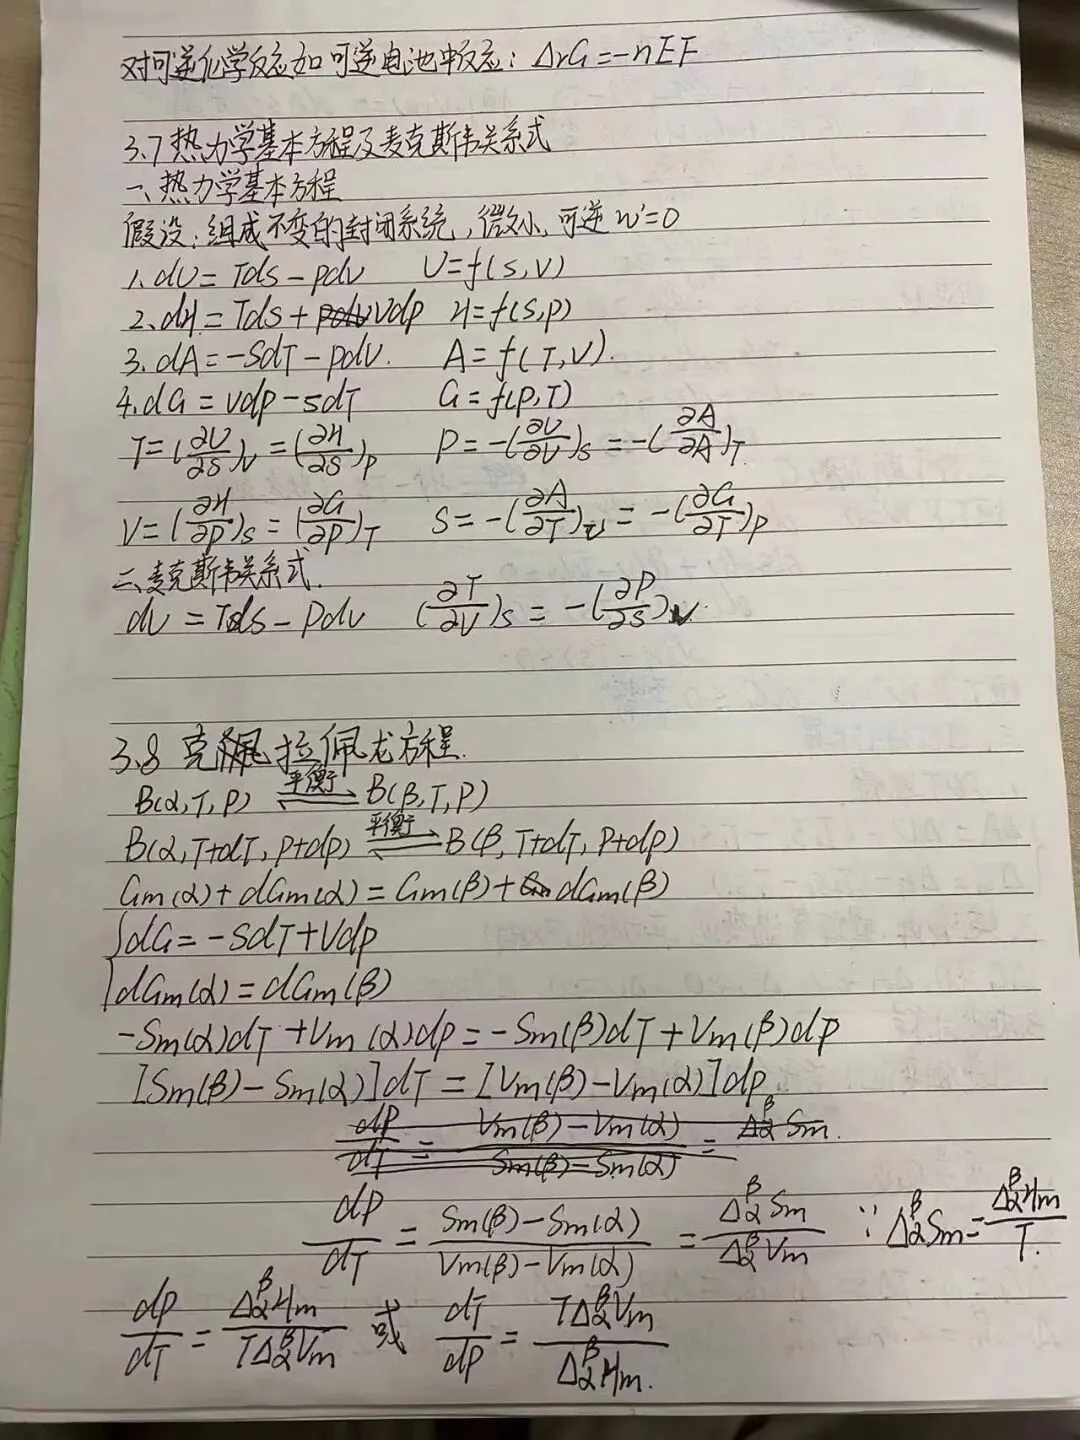 对可逆化学反应如可逆电池中反应: ΔrG=-nEF
3.7 热力学基本方程及麦克斯韦关系式
一、热力学基本方程
假设:组成不变的封闭系统,微小,可逆 w'=0
1. dU=Tds-pdv U=f(s,v)
2. dH=Tds+Vdp H=f(s,p)
3. dA=-SdT-pdV. A=f(T,V).
4. dG=Vdp-sdT G=f(p,T)
T=(∂U/∂S)v=(∂H/∂S)p P=-(∂U/∂V)s=-(∂A/∂A)T.
V=(∂H/∂p)s=(∂G/∂p)T S=-(∂A/∂T)v=-(∂G/∂T)p
二、麦克斯韦关系式.
dU=Tds-pdv (∂T/∂V)s=-(∂P/∂S)v.
3.8 克拉佩龙方程.
B(α,T,P) 平衡⇌ B(β,T,P)
B(α,T+dT,P+dp) 平衡⇌ B(β,T+dT,P+dp)
Gm(α)+dGm(α)=Gm(β)+dGm(β)
{dG=-SdT+Vdp
dGm(α)=dGm(β)
-Sm(α)dT+Vm(α)dp=-Sm(β)dT+Vm(β)dp
[Sm(β)-Sm(α)]dT=[Vm(β)-Vm(α)]dp
dp/dT=Vm(β)-Vm(α)/Sm(β)-Sm(α)=ΔαβSm.
dp/dT=Sm(β)-Sm(α)/Vm(β)-Vm(α)=ΔαβSm/ΔαβVm ∵ΔαβSm=ΔαβHm/T.
dp/dT=ΔαβHm/TΔαβVm 或 dT/dp=TΔαβVm/ΔαβHm.